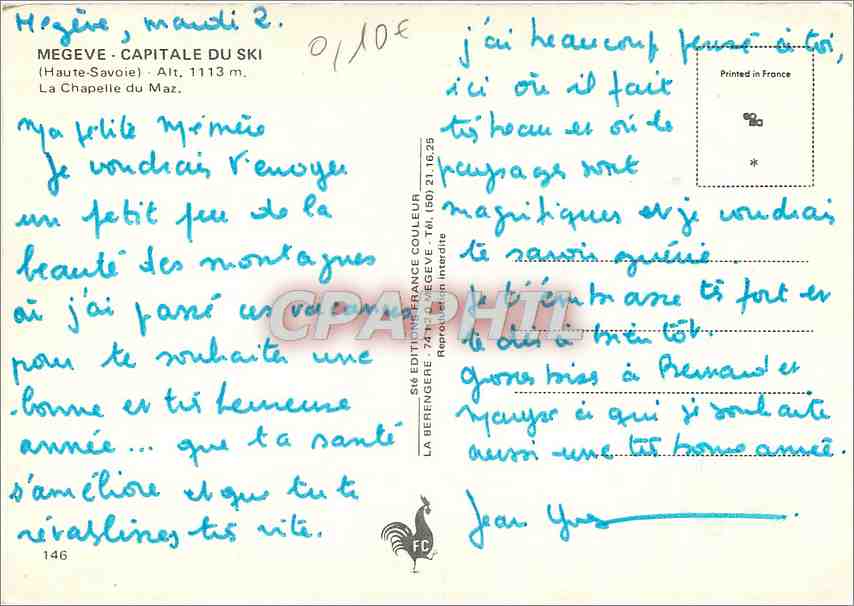 Megève, mardi 2.
0,10€
MEGEVE - CAPITALE DU SKI
(Haute-Savoie) - Alt. 1113 m.
La Chapelle du Maz.
Ma petite Mémère
Je voudrais t'envoyer
un petit peu de la
beauté des montagnes
où j'ai passé ces vacances
pour te souhaiter une
bonne et très heureuse
année... que ta santé
s'améliore et que tu te
rétablisses très vite.
146
Sté EDITIONS FRANCE COULEUR
LA BERENGERE - 74120 MEGEVE - Tél. (50) 21.16.25
Reproduction interdite
CPAPHIL
FC
Printed in France
*
j'ai beaucoup pensé à toi,
ici où il fait
très beau et où les
paysages sont
magnifiques et je voudrais
te savoir guérie.
Je t'embrasse très fort et
te dis à bientôt.
grosses bises à Bernard et
à qui je souhaite
aussi une très bonne année.
Jean Yves